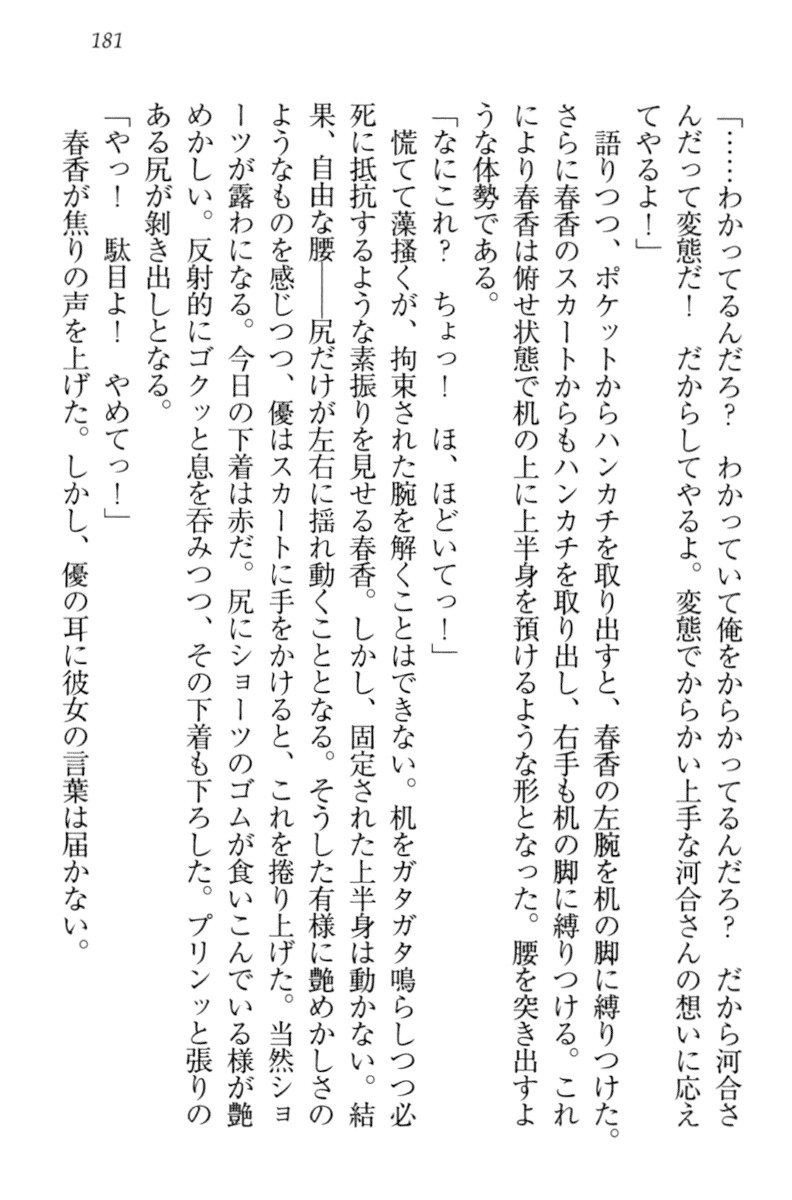 181
「……わかってるんだろ？　わかっていて俺をからかってるんだろ？　だから河合さ
んだって変態だ！　だからしてやるよ。変態でからかい上手な河合さんの想いに応え
てやるよ！」
語りつつ、ポケットからハンカチを取り出すと、春香の左腕を机の脚に縛りつけた。
さらに春香のスカートからもハンカチを取り出し、右手も机の脚に縛りつける。これ
により春香は俯せ状態で机の上に上半身を預けるような形となった。腰を突き出すよ
うな体勢である。
「なにこれ？　ちょっ！　ほ、ほどいてっ！」
慌てて藻掻くが、拘束された腕を解くことはできない。机をガタガタ鳴らしつつ必
死に抵抗するような素振りを見せる春香。しかし、固定された上半身は動かない。結
果、自由な腰――尻だけが左右に揺れ動くこととなる。そうした有様に艶めかしさの
ようなものを感じつつ、優はスカートに手をかけると、これを捲り上げた。当然ショ
ーツが露わになる。今日の下着は赤だ。尻にショーツのゴムが食いこんでいる様が艶
めかしい。反射的にゴクッと息を呑みつつ、その下着も下ろした。プリンッと張りの
ある尻が剥き出しとなる。
「やっ！　駄目よ！　やめてっ！」
春香が焦りの声を上げた。しかし、優の耳に彼女の言葉は届かない。